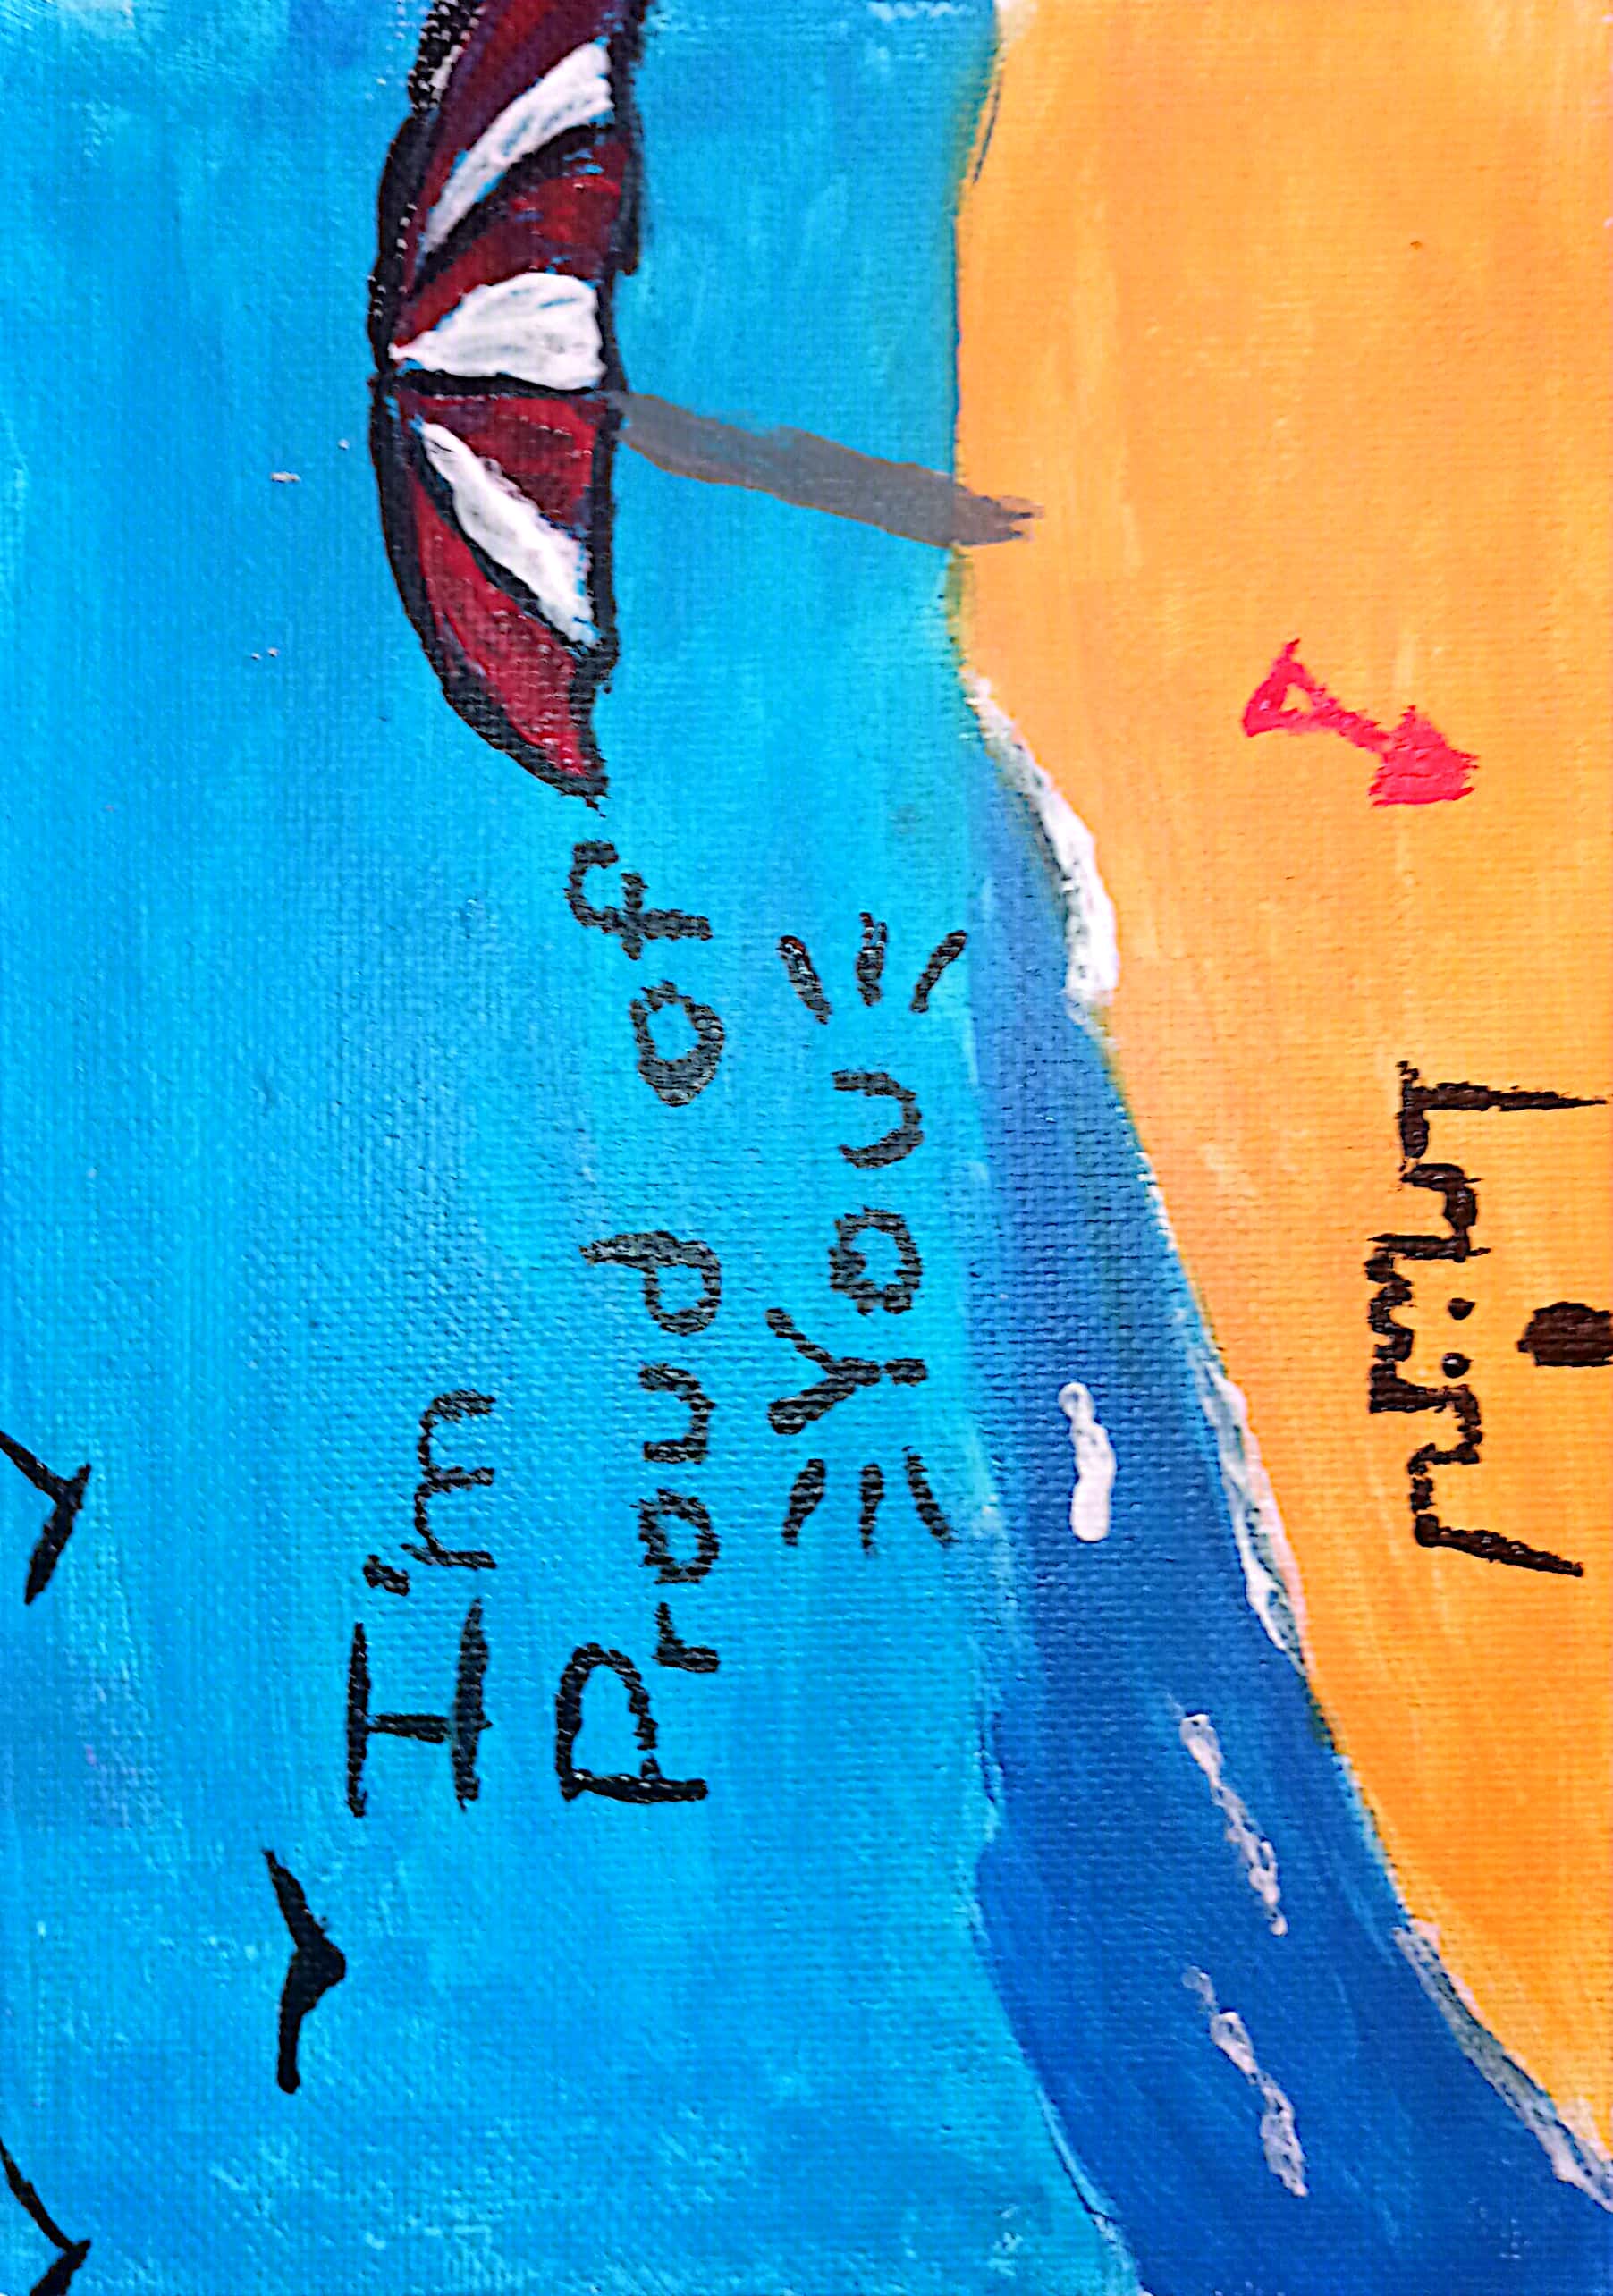 I'm
Proud of
You